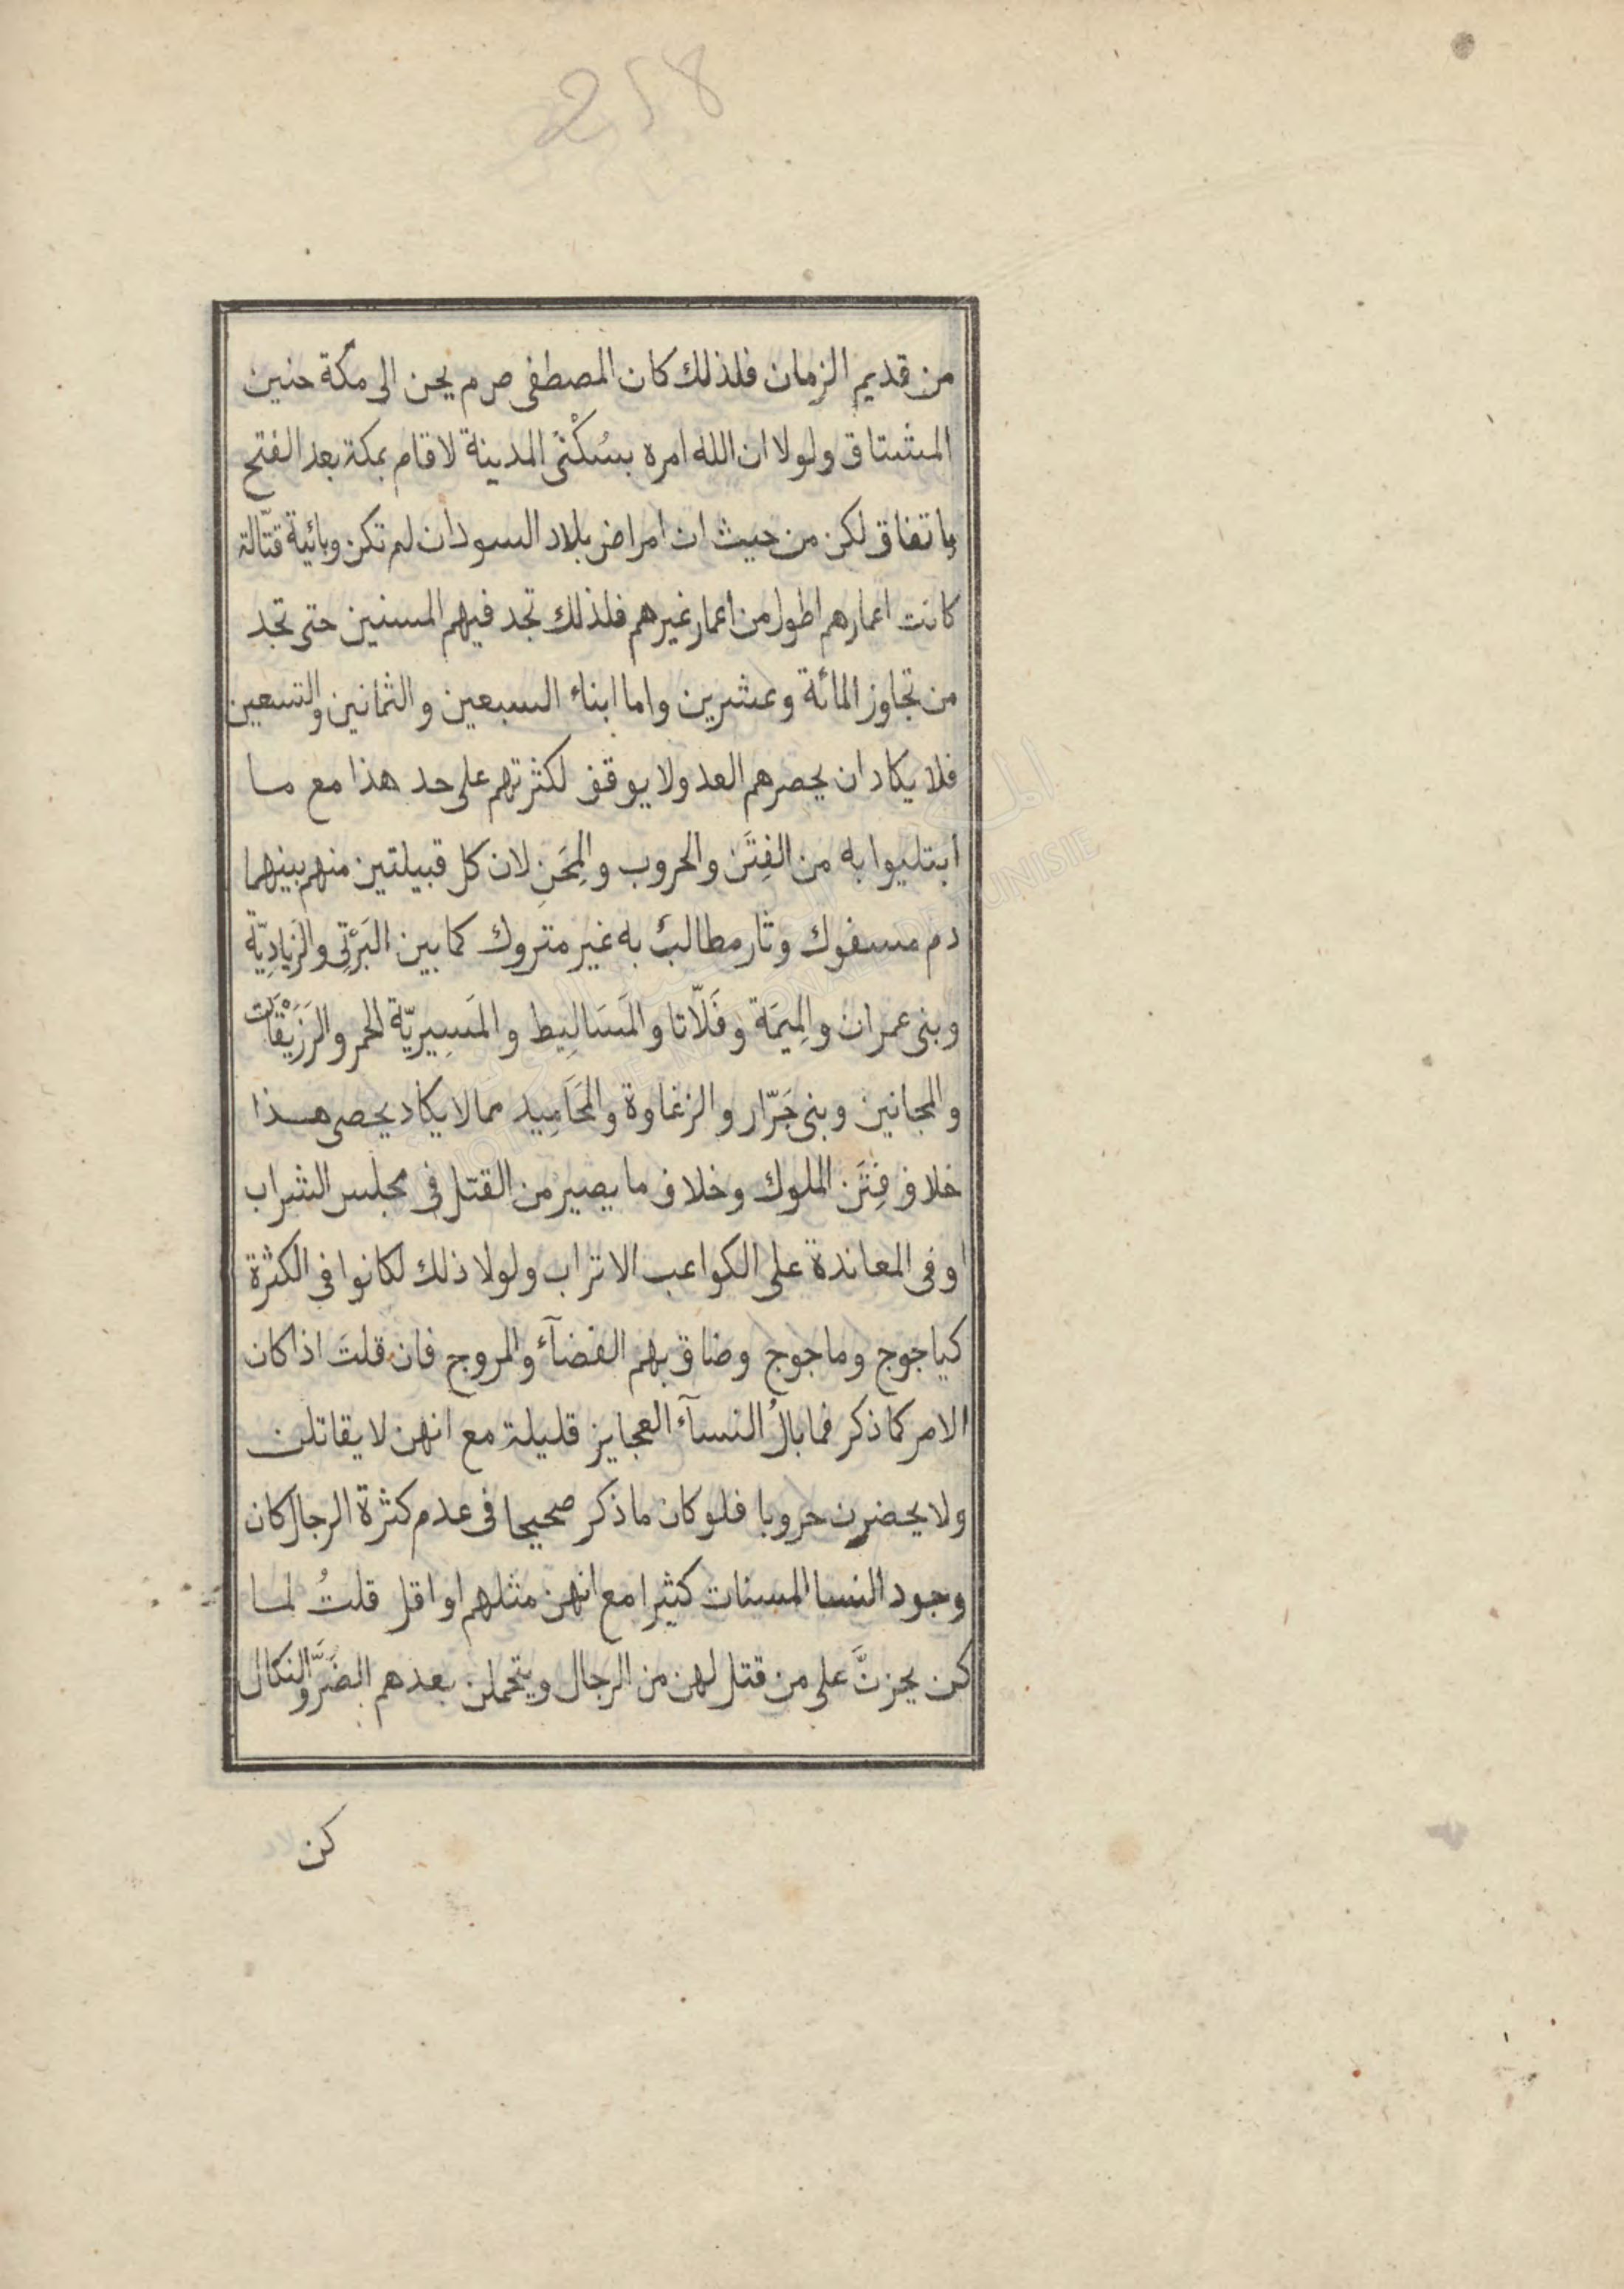 258
من قديم الزمان فلذلك كان المصطفى صم يحن الى مكة حنين
المشتاق ولولا ان الله امره بسُكْنَى المدينة لاقام بمكة بعد الفتح
باتفاق لكن من حيث ان امراض بلاد السودان لم تكن وبائية قتّالة
كانت اعمارهم اطول من اعمار غيرهم فلذلك تجد فيهم المسنين حتى تجد
من تجاوز المائة وعشرين واما ابناء السبعين والثمانين والتسعين
فلا يكاد ان يحصرهم العد ولا يوقف لكثرتهم على حد هذا مع ما
ابتليوا به من الفِتَن والحروب والمِحَنِ لان كل قبيلتين منهم بينهما
دم مسفوك وثار مطالبٌ به غير متروك كما بين البَرْتِى والزَيادِيّة
وبنى عمران والمِيمَة وفَلّاتا والمَسَالِيط والمَسِيريّة الحمر والرَزَيْقَات
والمجانين وبنى جَرّار والزغاوة والمَحَامِيد مما لا يكاد يحصى هذا
خلاف فِتَن الملوك وخلاف ما يصير من القتل فى مجلس الشراب
او فى المعاندة على الكواعب الاتراب ولولا ذلك لكانوا فى الكثرة
كياجوج وماجوج وضاق بهم الفضآء والمروج فان قلتَ اذا كان
الامر كما ذكر فما بالُ النسآء العجايز قليلة مع انهن لا يقاتلن
ولا يحضرن حروبا فلو كان ما ذكر صحيحا فى عدم كثرة الرجال كان
وجود النسا المسنات كثيرا مع انهن مثلهم او اقل قلتُ لما
كن يحزنَّ على من قتل لهن من الرجال ويتحملن بعدهم الضَرَّ والنكال
كن